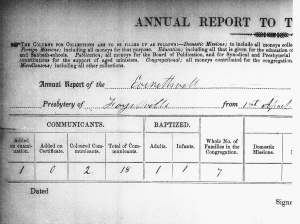 ANNUAL REPORT TO T
THE COLUMNS FOR COLLECTIONS ARE TO BE FILLED UP AS FOLLOWS:—Domestic Missions; to include all moneys colle
Foreign Missions; including all moneys for that purpose. Education; including all that is given for the education of
and Sabbath-schools. Publication; all moneys for the Board of Publication, and for Synodical and Presbyterial
contributions for the support of aged ministers. Congregational; all moneys contributed for the congregation
Miscellaneous; including all other collections.
Annual Report of the
Presbytery of Fayetteville from 1st April
COMMUNICANTS. BAPTIZED.
Added on Examination. Added on Certificate. Coloured Communicants. Total of Communicants. Adults. Infants. Whole No. of Families in the Congregation. Domestic Missions.
1 0 2 18 1 1 7
Dated
Signe